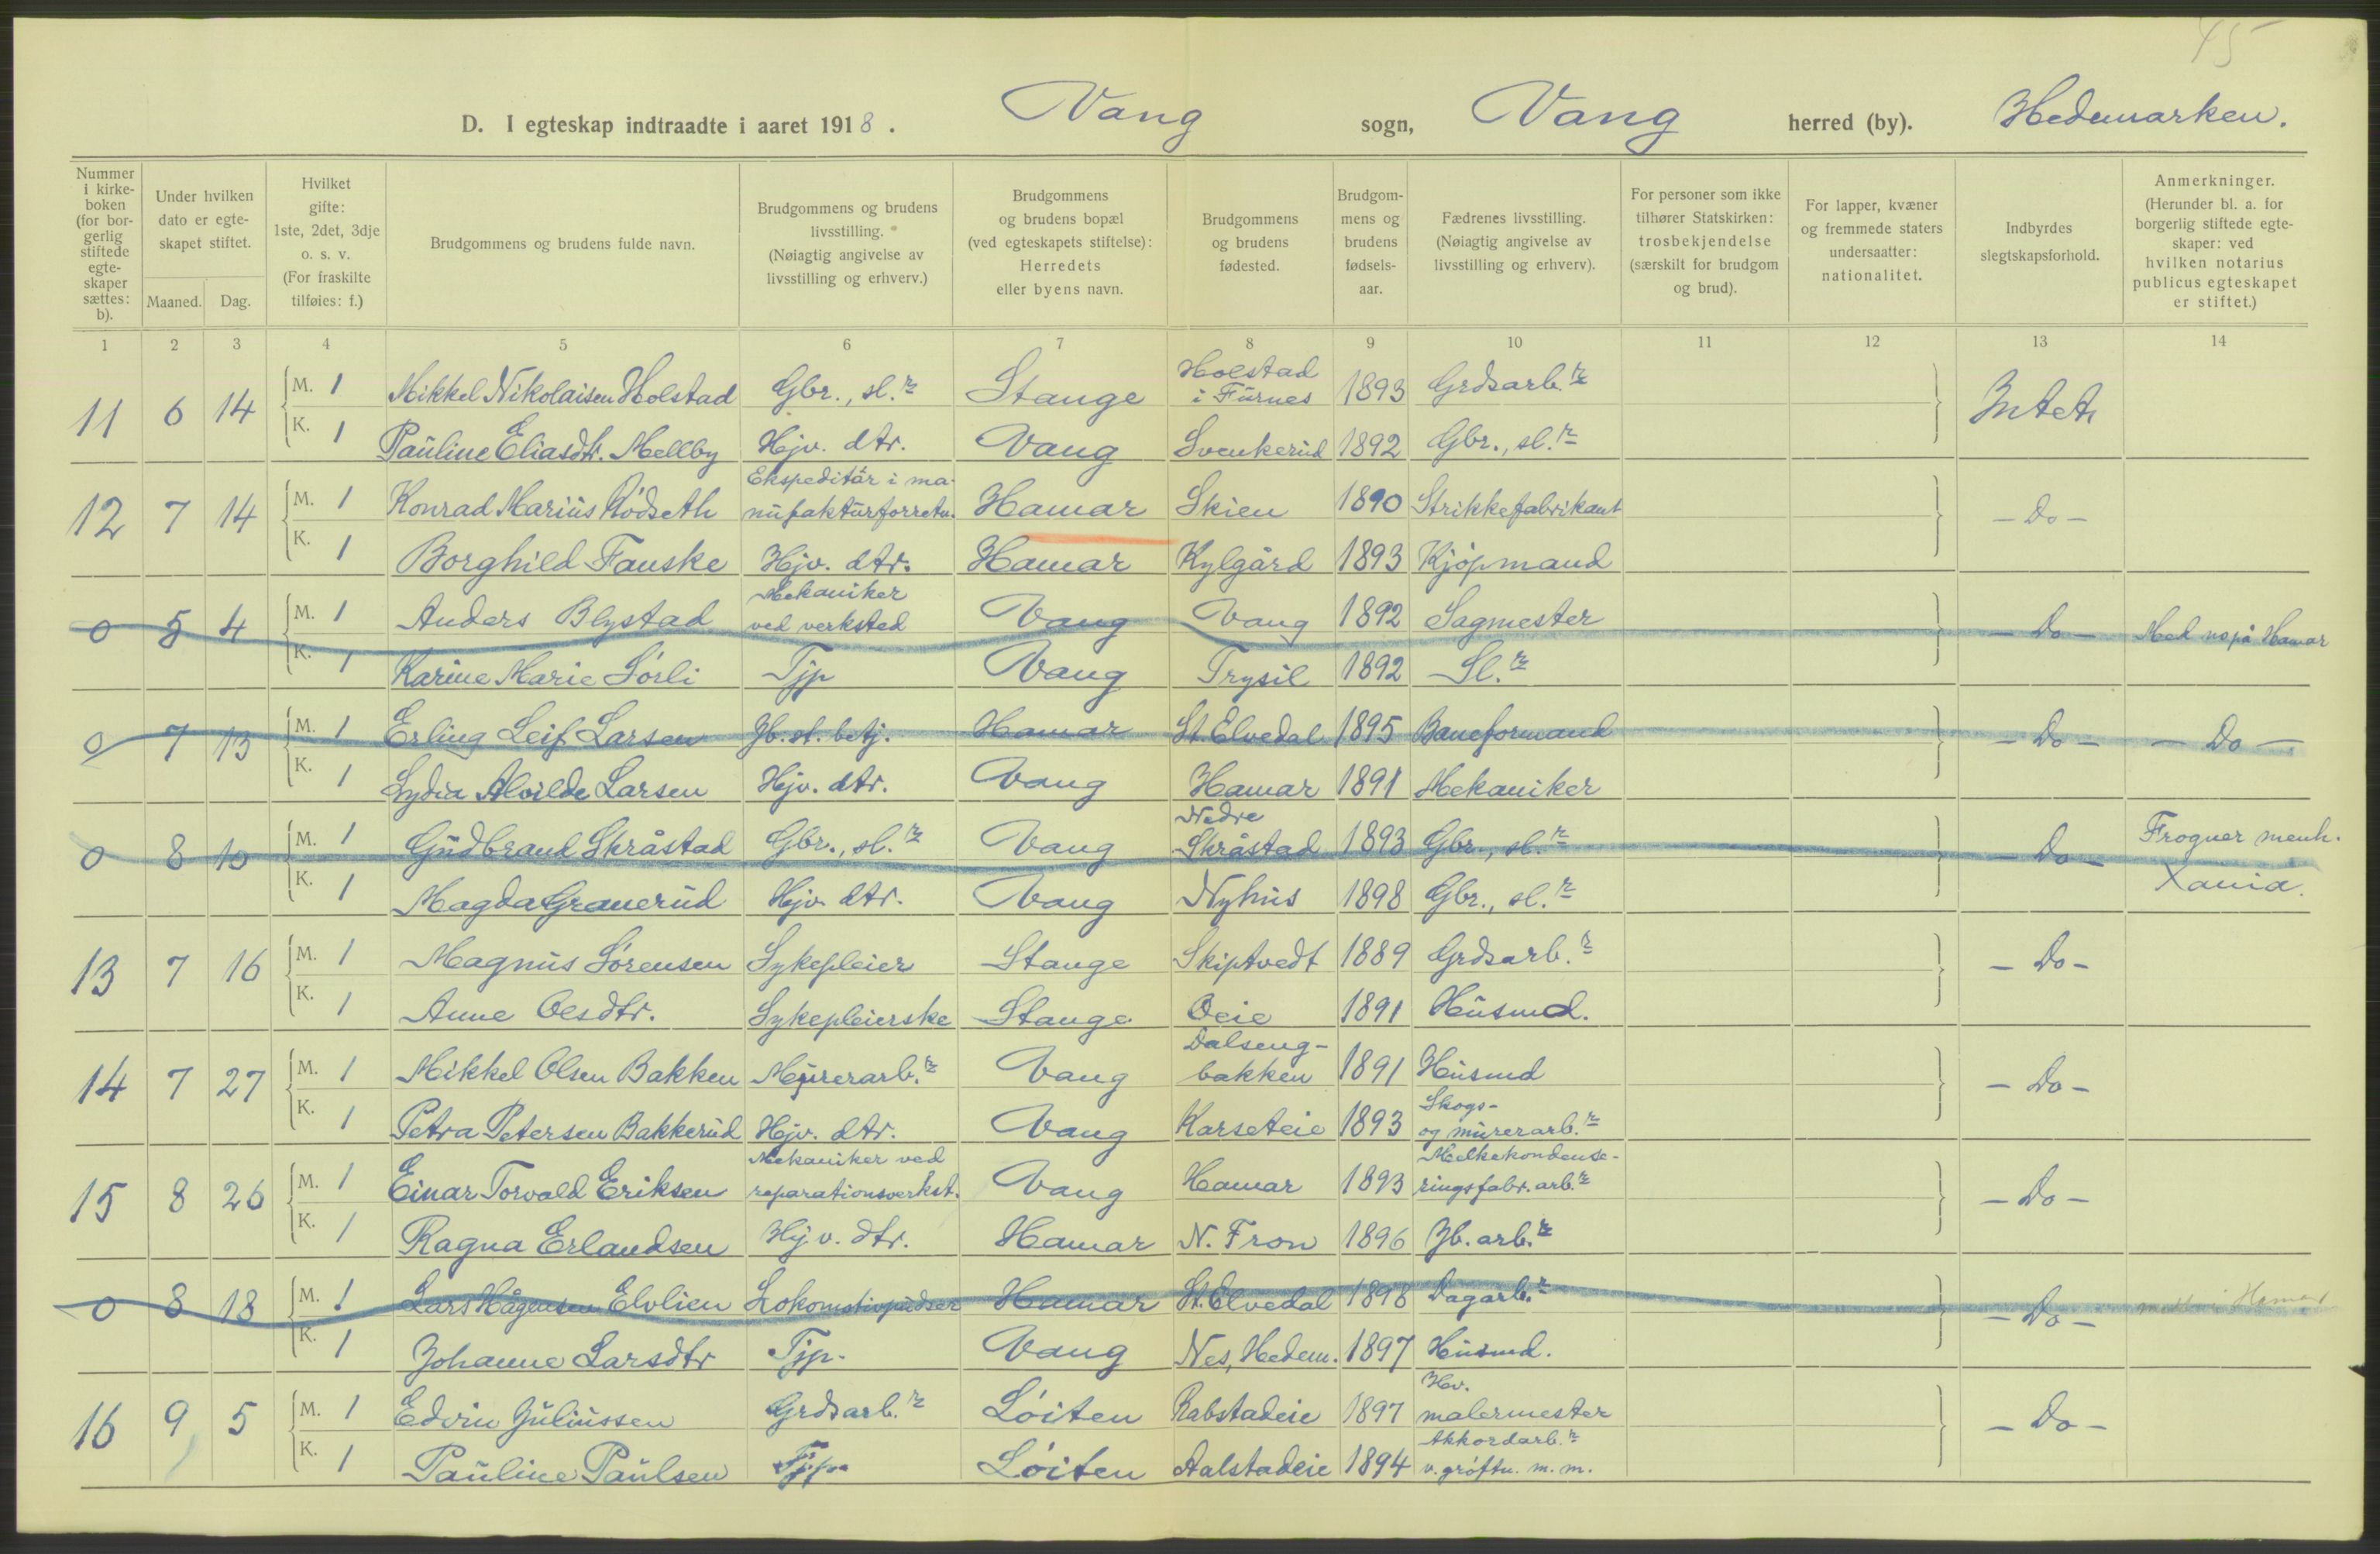 45
D. I egteskap indtraadte i aaret 1918. Vang sogn, Vang herred (by). Hedemarken.
Nummer i kirke-boken (for bor-gerlig stiftede egte-skaper sættes: b).
Under hvilken dato er egte-skapet stiftet.
Maaned. Dag.
Hvilket gifte: 1ste, 2det, 3dje o. s. v. (For fraskilte tilføies: f.)
Brudgommens og brudens fulde navn.
Brudgommens og brudens livsstilling. (Nøiagtig angivelse av livsstilling og erhverv.)
Brudgommens og brudens bopæl (ved egteskapets stiftelse): Herredets eller byens navn.
Brudgommens og brudens fødested.
Brudgom-mens og brudens fødsels-aar.
Fædrenes livsstilling. (Nøiagtig angivelse av livsstilling og erhverv).
For personer som ikke tilhører Statskirken: trosbekjendelse (særskilt for brudgom og brud).
For lapper, kvæner og fremmede staters undersaatter: nationalitet.
Indbyrdes slegtskapsforhold.
Anmerkninger. (Herunder bl. a. for borgerlig stiftede egte-skaper: ved hvilken notarius publicus egteskapet er stiftet.)
1 2 3 4 5 6 7 8 9 10 11 12 13 14
11 6 14 M. 1 Mikkel Nikolaisen Holstad Gbr., sl.r Stange Holstad i Furnes 1893 Grdsarb.r Intet
K. 1 Pauline Eliasdtr. Mellby Hjv. dtr. Vang Svenkerud 1892 Gbr., sl.r
12 7 14 M. 1 Konrad Marius Rödseth Ekspeditör i ma-nufakturforretn. Hamar Skien 1890 Strikkefabrikant - Do -
K. 1 Borghild Fauske Hjv. dtr. Hamar Kylgård 1893 Kjöpmand
0 5 4 M. 1 Anders Blystad Mekaniker ved verksted Vang Vang 1892 Sagmester - Do - Med no på Hamar
K. 1 Karine Marie Sörli Tjp Vang Trysil 1892 Sl.r
0 7 13 M. 1 Erling Leif Larsen Jb. st. betj. Hamar St. Elvedal 1895 Baneformand - Do - - Do -
K. 1 Lydia Alvilde Larsen Hjv. dtr. Vang Hamar 1891 Mekaniker
0 8 10 M. 1 Gudbrand Skråstad Gbr., sl.r Vang Nedre Skråstad 1893 Gbr., sl.r - Do - Frogner menh. Xania.
K. 1 Magda Granerud Hjv. dtr. Vang Nyhus 1898 Gbr., sl.r
13 7 16 M. 1 Magnus Sörensen Sykepleier Stange Skiptvedt 1889 Grdsarb.r - Do -
K. 1 Anne Olesdtr. Sykepleierske Stange Oeie 1891 Husmd.
14 7 27 M. 1 Mikkel Olsen Bakken Murerarb.r Vang Dalseng-bakken 1891 Husmd - Do -
K. 1 Petra Petersen Bakkerud Hjv. dtr. Vang Karseteie 1893 Skogs- og murerarb.r
15 8 26 M. 1 Einar Torvald Eriksen Mekaniker ved reparationsverkst. Vang Hamar 1893 Melkekondense-ringsfabr. arb.r - Do -
K. 1 Ragna Erlandsen Hjv. dtr. Hamar N. Fron 1896 Jb. arb.r
0 8 18 M. 1 Lars Hågensen Elvlien Lokomotivpudser Hamar St. Elvedal 1898 Dagarb.r - Do - Hamar
K. 1 Johanne Larsdtr Tjp. Vang Nes, Hedem. 1897 Husmd.
16 9 5 M. 1 Edvin Juliussen Grdsarb.r Löiten Rabstadeie 1897 Hv. malermester - Do -
K. 1 Pauline Paulsen Tjp. Löiten Aalstadeie 1894 Akkordarb.r v. gröftn. m. m.